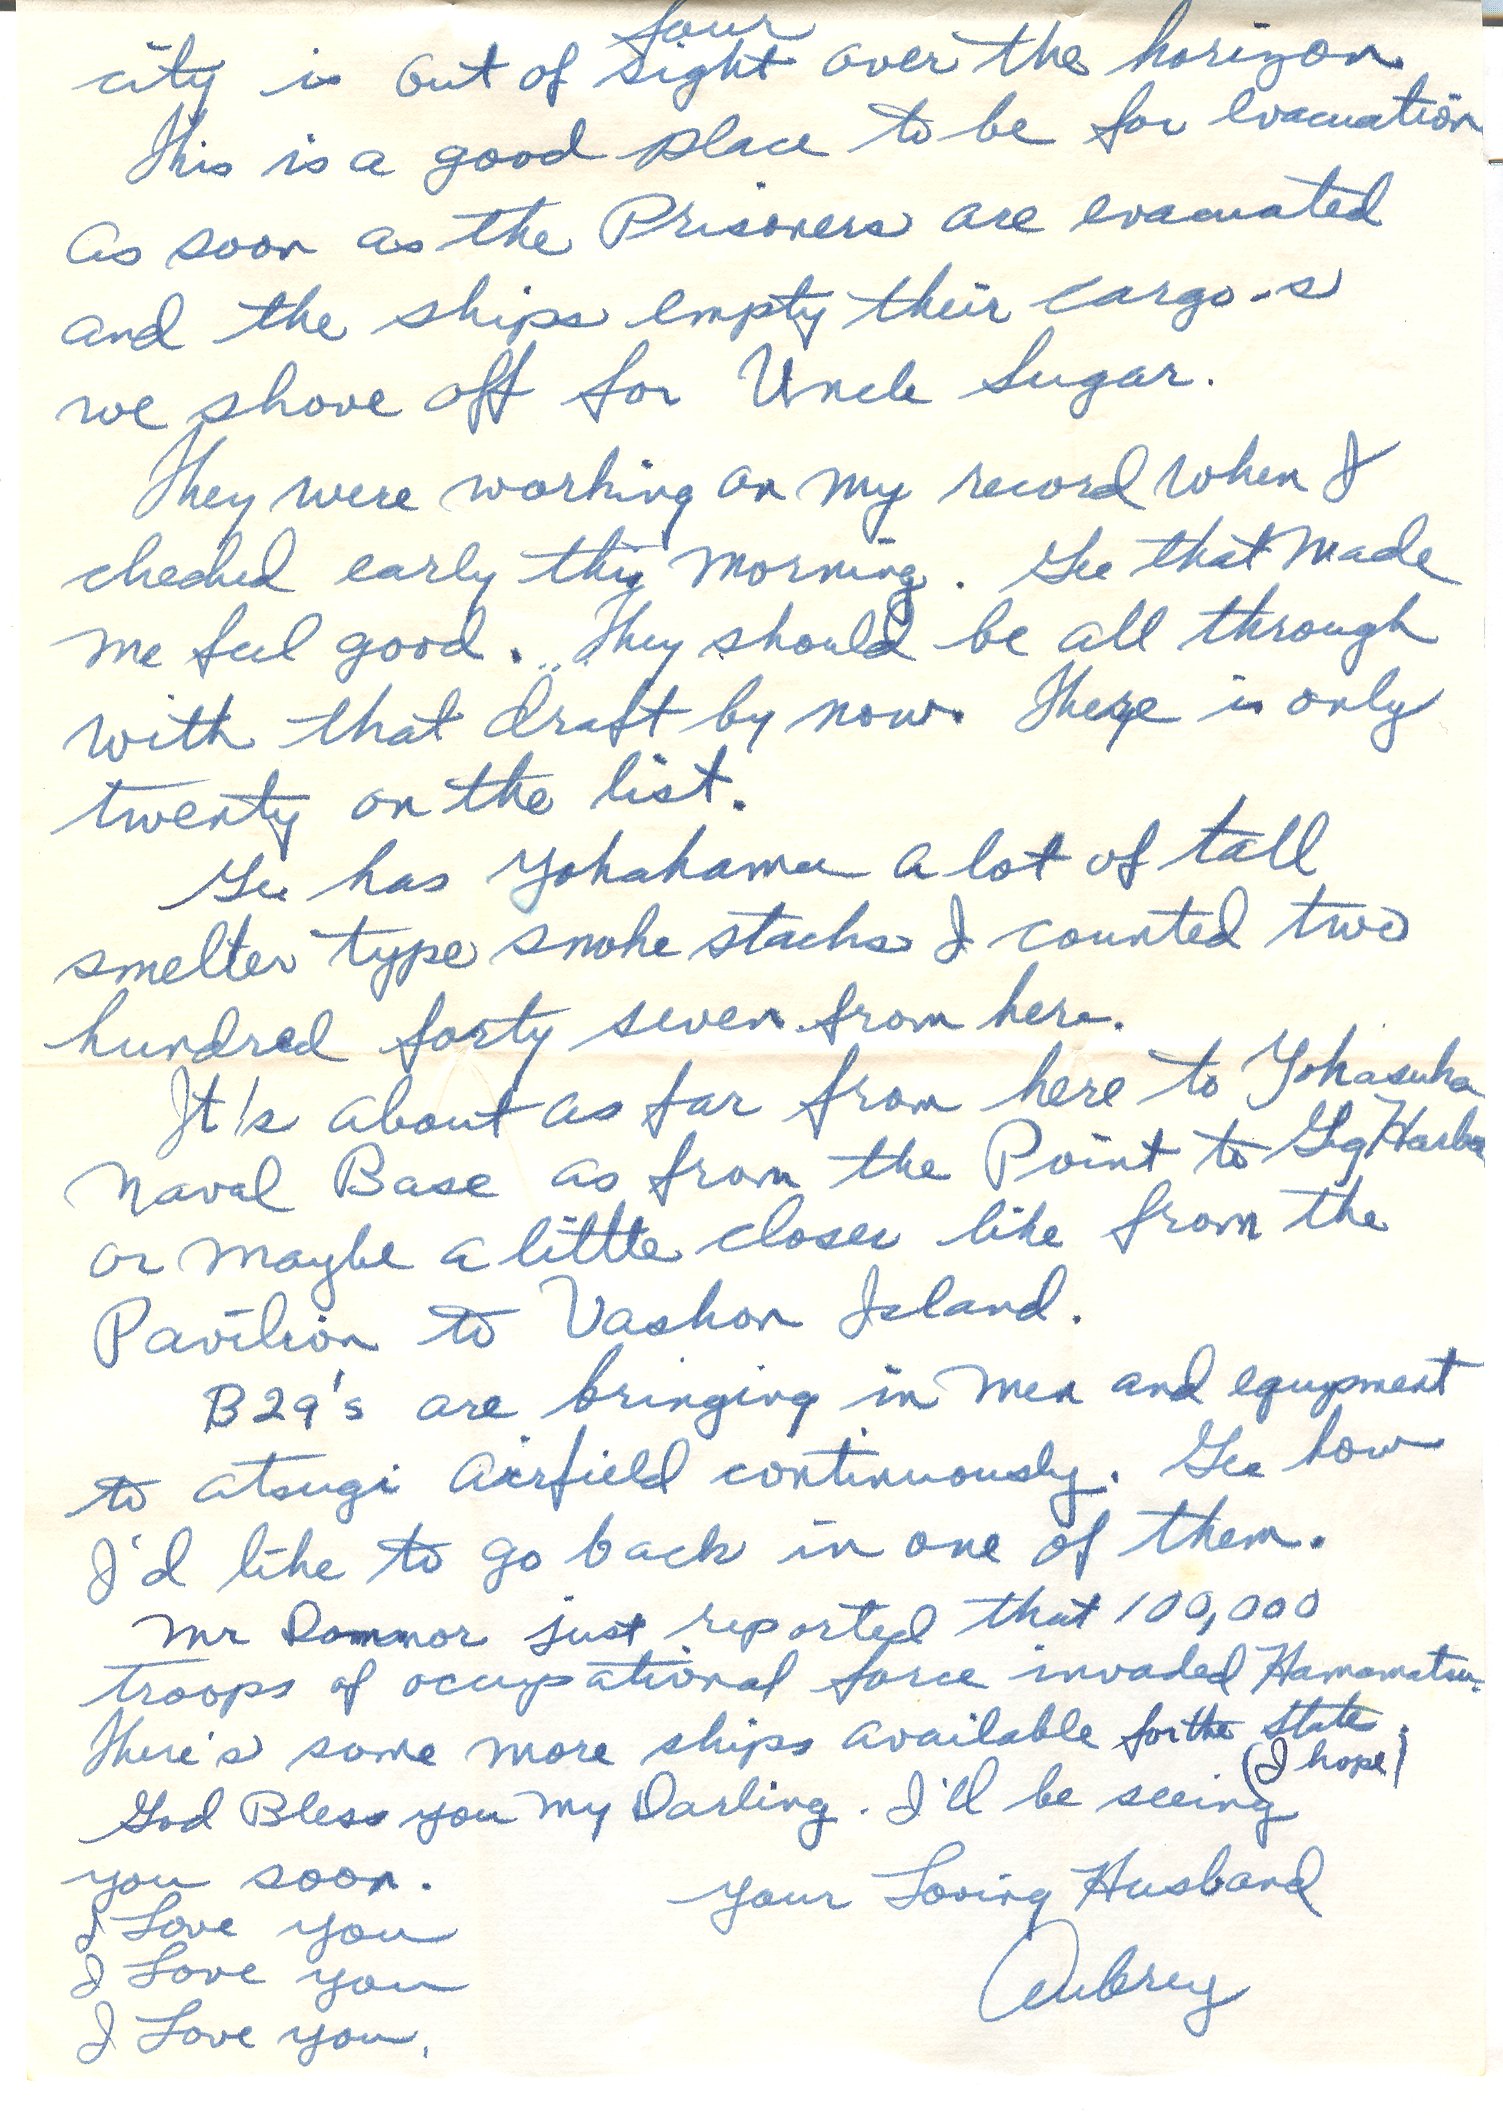 four
city is out of sight over the horizon
This is a good place to be for evacuation
as soon as the Prisoners are evacuated
and the ships empty their cargo-s
we shove off for Uncle Sugar.
They were working on my record when I
checked early this morning. Gee that made
me feel good. They should be all through
with that draft by now. There is only
twenty on the list.
Gee has Yokahama a lot of tall
smelter type smoke stacks I counted two
hundred forty seven from here.
It's about as far from here to Yokasuka
Naval Base as from the Point to Gig Harbor
or maybe a little closer like from the
Pavilion to Vashon Island.
B29's are bringing in men and equypment
to atsugi airfield continuously. Gee how
I'd like to go back in one of them.
Mr just reported that 100,000
troops of occupational force invaded Hamamatsu.
There's some more ships available for the State.
(I hope)
God Bless you my Darling. I'll be seeing
you soon.
your Loving Husband
Aubrey
I Love you
I Love you
I Love you.